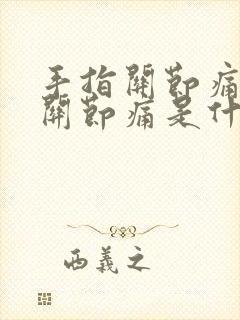 手指關節痛
關節痛是什
西義之